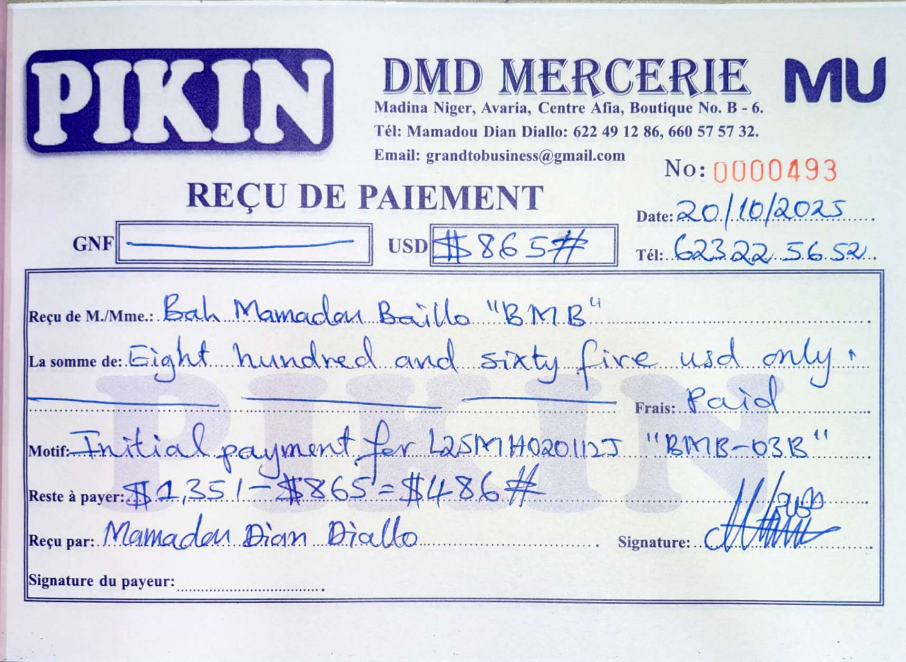 PIKIN
DMD MERCERIE
MU
Madina Niger, Avaria, Centre Afia, Boutique No. B - 6.
Tél: Mamadou Dian Diallo: 622 49 12 86, 660 57 57 32.
Email: grandtobusiness@gmail.com
No: 0000493
REÇU DE PAIEMENT
Date: 20/10/2025
GNF
USD $865#
Tél: 623.22.56.52
Reçu de M./Mme.: Bah Mamadou Baillo "BMB"
La somme de: Eight hundred and sixty five usd only.
Frais: Paid
Motif: Initial payment for L25MH020112J "BMB-03B"
Reste à payer: $1,351-$865=$486#
Reçu par: Mamadou Dian Diallo
Signature:
Signature du payeur:
PIKIN